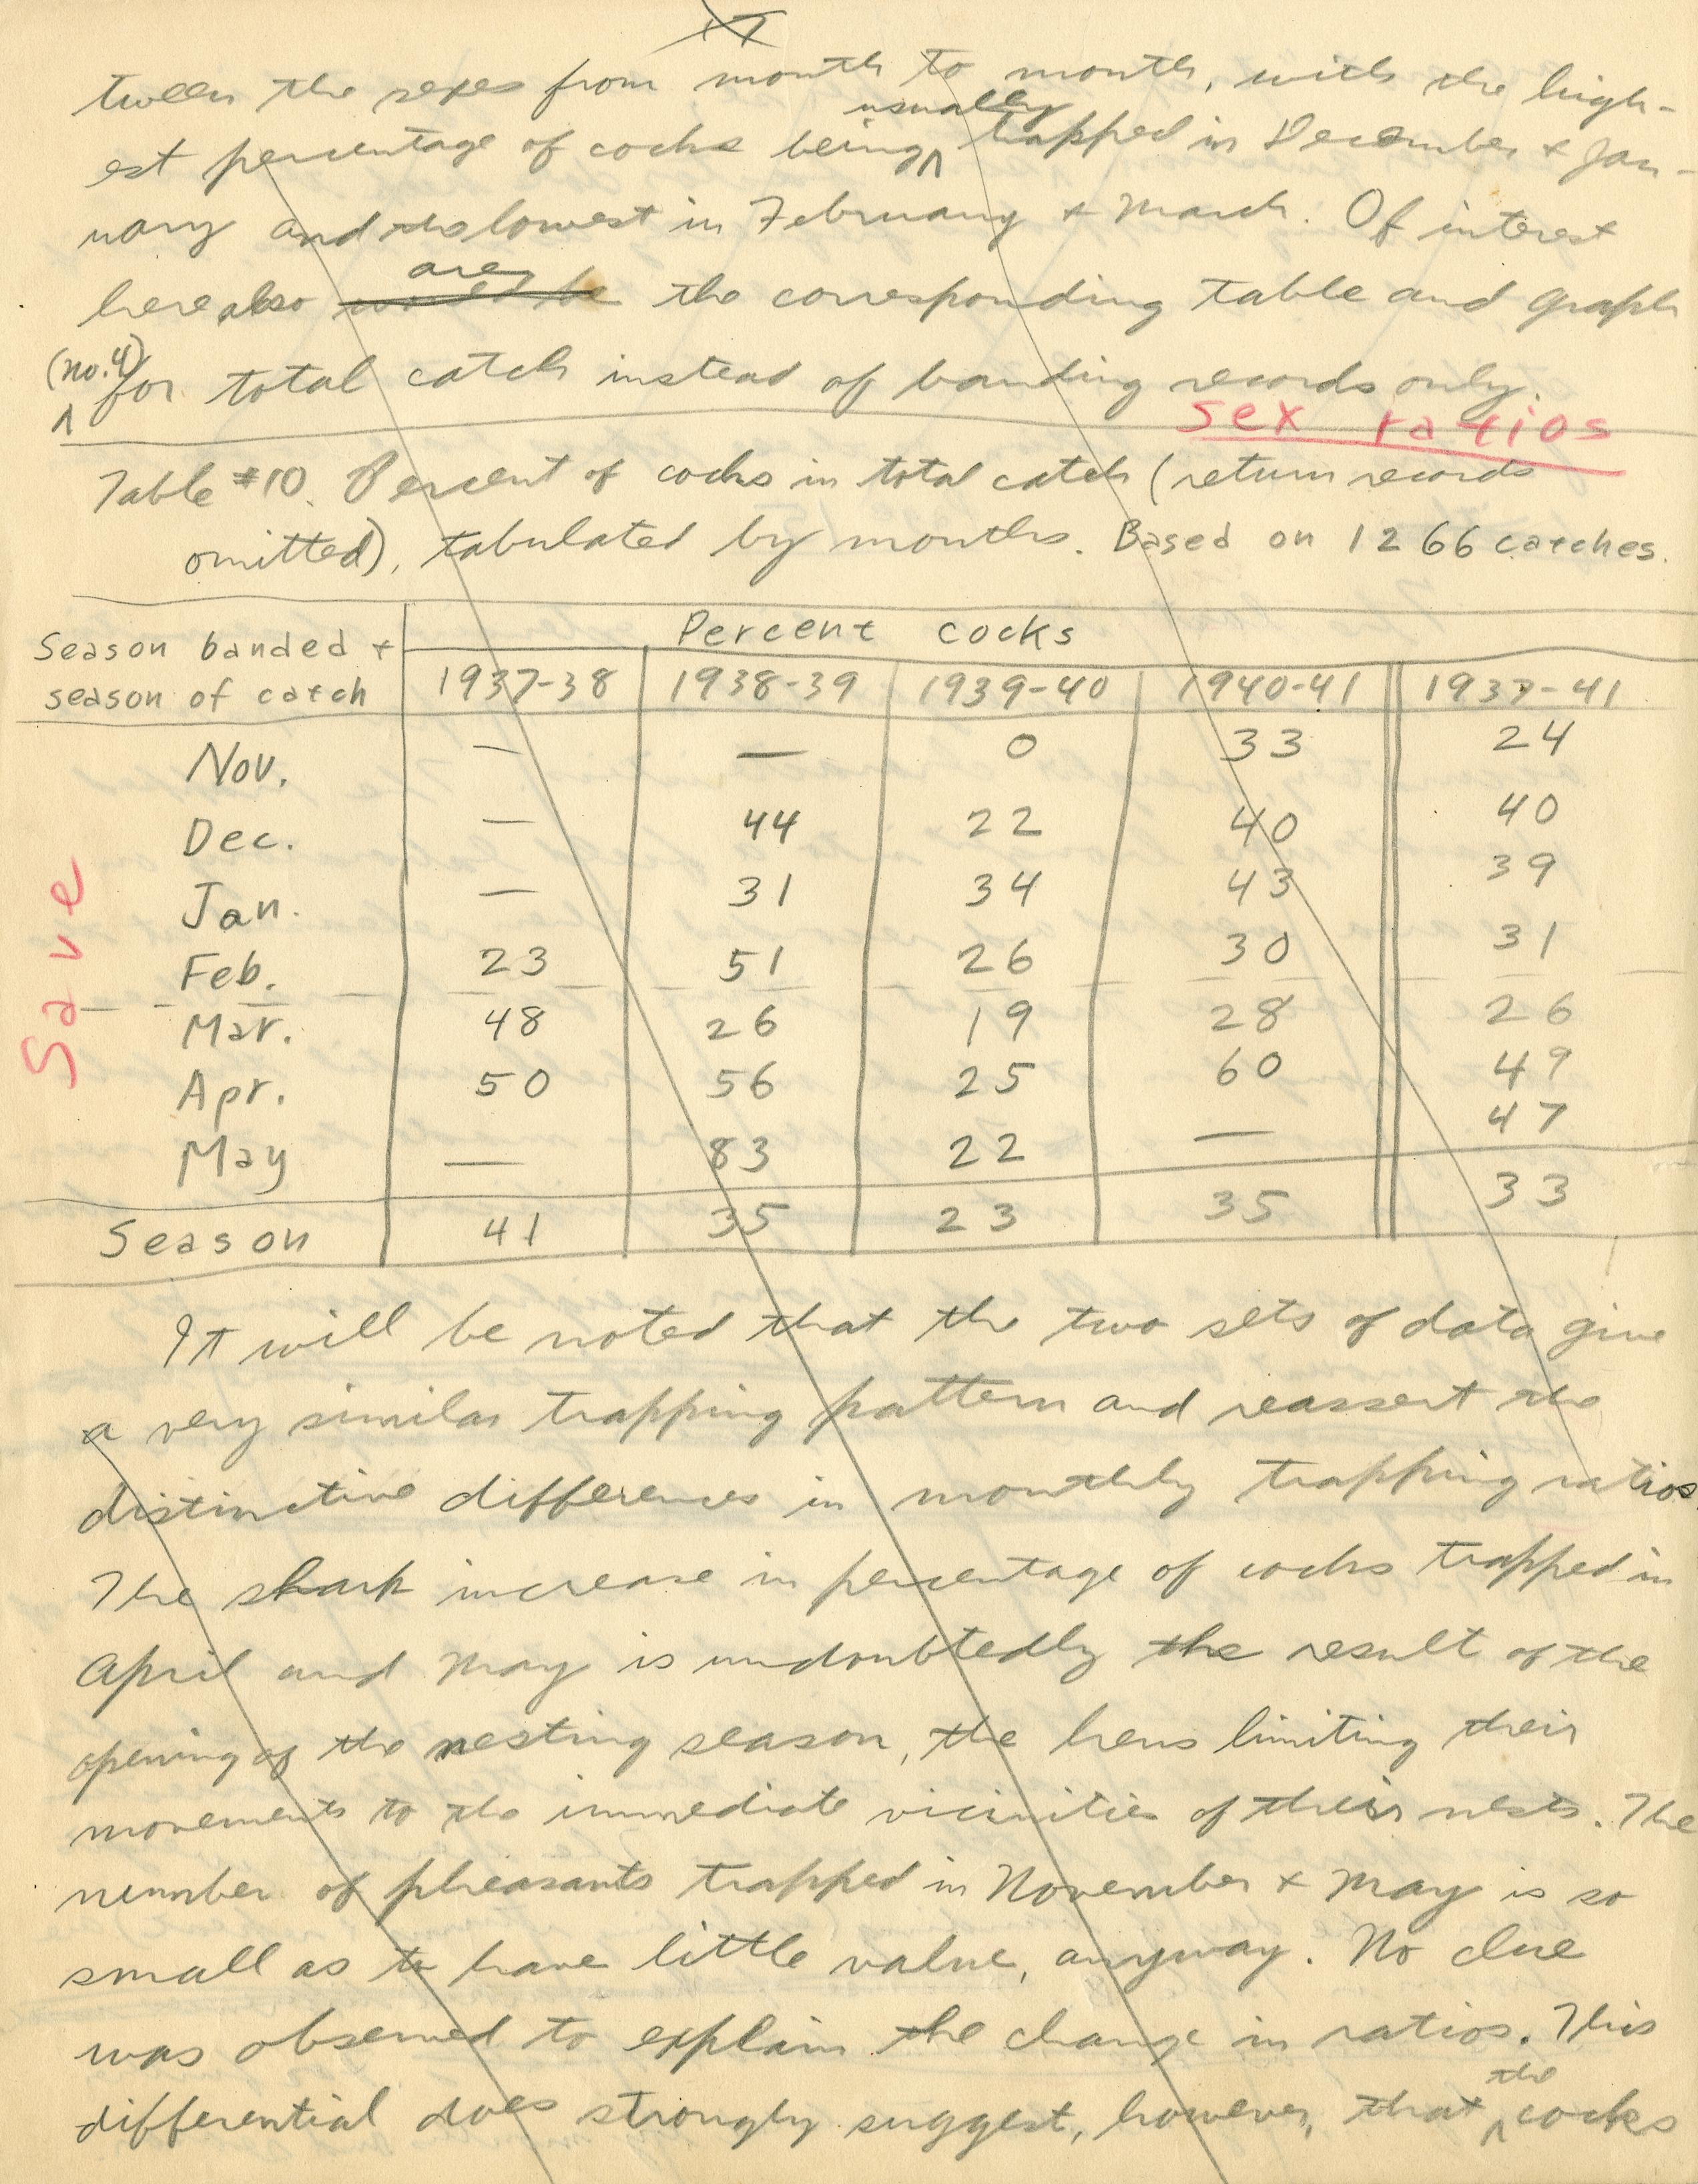 tween the sexes from month to month, with the high-
est percentage of cocks being usually trapped in December + Jan-
uary and the lowest in February + March. Of interest
here also are would be the corresponding table and graph
(no. 4) for total catch instead of banding records only.
sex ratios
Table #10. Percent of cocks in total catch (return records
omitted), tabulated by months. Based on 1266 catches.
Season banded + season of catch | Percent cocks
1937-38 | 1938-39 | 1939-40 | 1940-41 | 1937-41
Nov. — — 0 33 24
Dec. — 44 22 40 40
Jan. — 31 34 43 39
Feb. 23 51 26 30 31
Mar. 48 26 19 28 26
Apr. 50 56 25 60 49
May — 83 22 — 47
Season 41 35 23 35 33
Save
It will be noted that the two sets of data give
a very similar trapping pattern and reassert the
distinctive differences in monthly trapping ratios.
The sharp increase in percentage of cocks trapped in
April and May is undoubtedly the result of the
opening of the nesting season, the hens limiting their
movements to the immediate vicinities of their nests. The
number of pheasants trapped in November + May is so
small as to have little value, anyway. No clue
was observed to explain the change in ratios. This
differential does strongly suggest, however, that the cocks